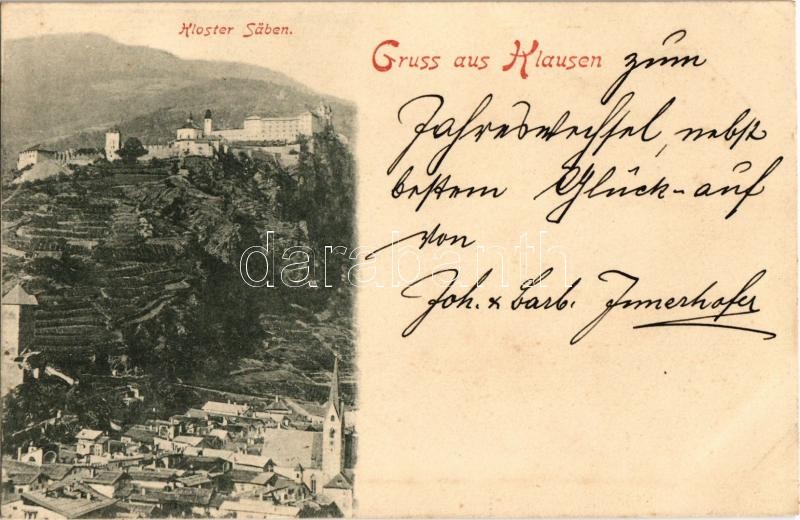 Kloster Säben.
Gruss aus Klausen zum
Jahreswechsel, nebst
bestem Glück-auf
von
Joh. & Barb. Innerhofer
darabanth